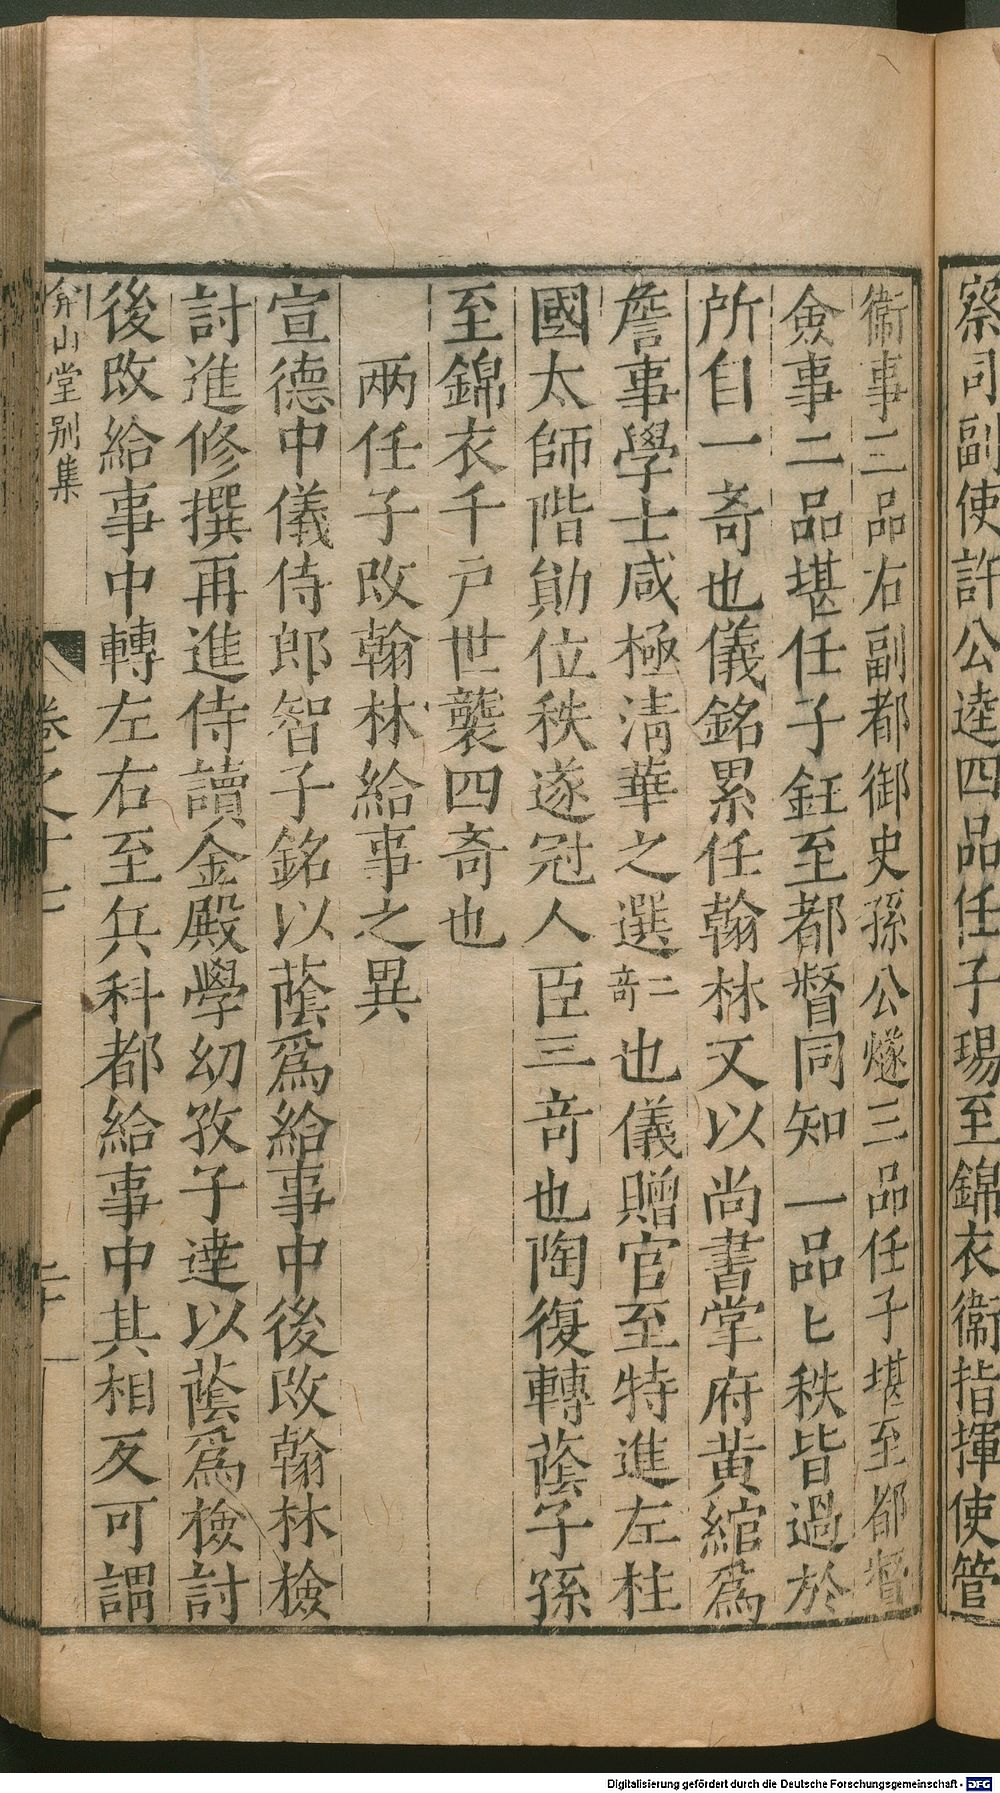 察司副使許公逵四品任子瑒至錦衣衞指揮使管
衞事三品右副都御史孫公燧三品任子堪至都督
僉事二品堪任子鈺至都督同知一品匕秩皆過於
所自一竒也儀銘累任翰林又以尚書掌府黄綰爲
詹事學士咸極淸華之選二竒也儀贈官至特進左柱
國太師階勛位秩遂冠人臣三竒也陶復轉蔭子孫
至錦衣千戸世襲四竒也
兩任子改翰林給事之異
宣德中儀侍郎智子銘以蔭爲給事中後改翰林檢
討進修撰再進侍讀金殿學幼孜子達以蔭爲檢討
後改給事中轉左右至兵科都給事中其相反可謂
弇山堂别集
卷之十七
二十
Digitalisierung gefördert durch die Deutsche Forschungsgemeinschaft - DFG